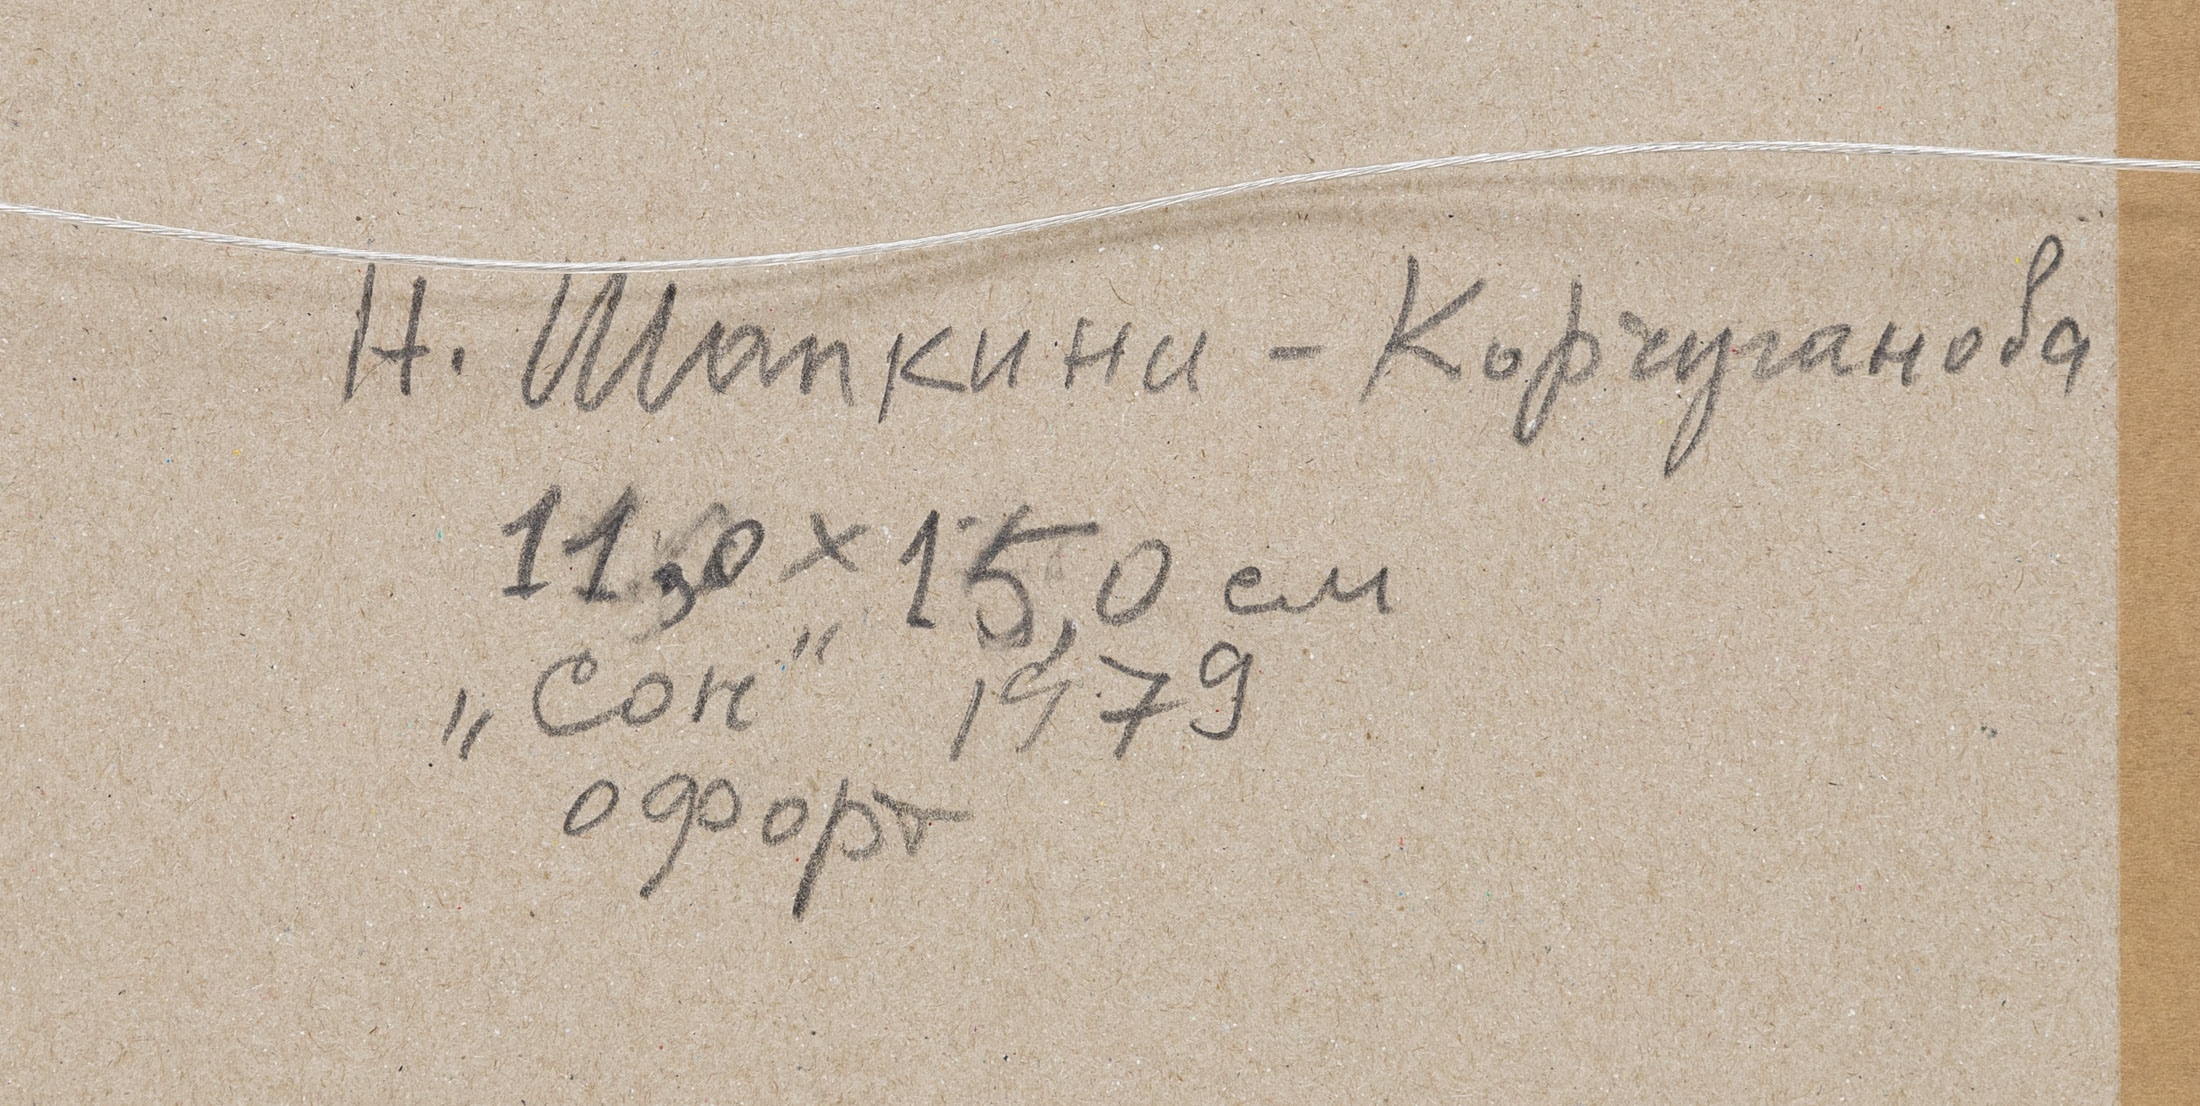 Н. Шапкини - Корчуганова
11,0 x 15,0 см
„Сон" 1979
офорт